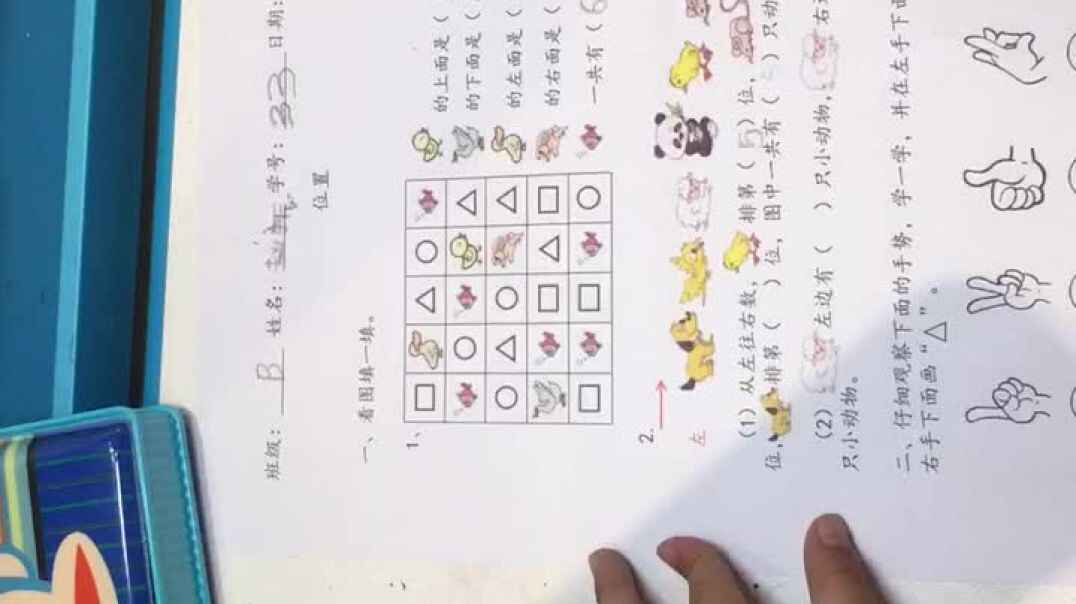 班级： B 姓名： 学号：33 日期：
位置
一、看图填一填。
1、
的上面是（
的下面是（
的左面是（
的右面是（
一共有（6
2.
左
（1）从左往右数， 排第（5）位，
位， 排第（ ）位，图中一共有（ ）只动
（2） 左边有（ ）只小动物， 右
只小动物。
二、仔细观察下面的手势，学一学，并在左手下面
右手下面画“△”。